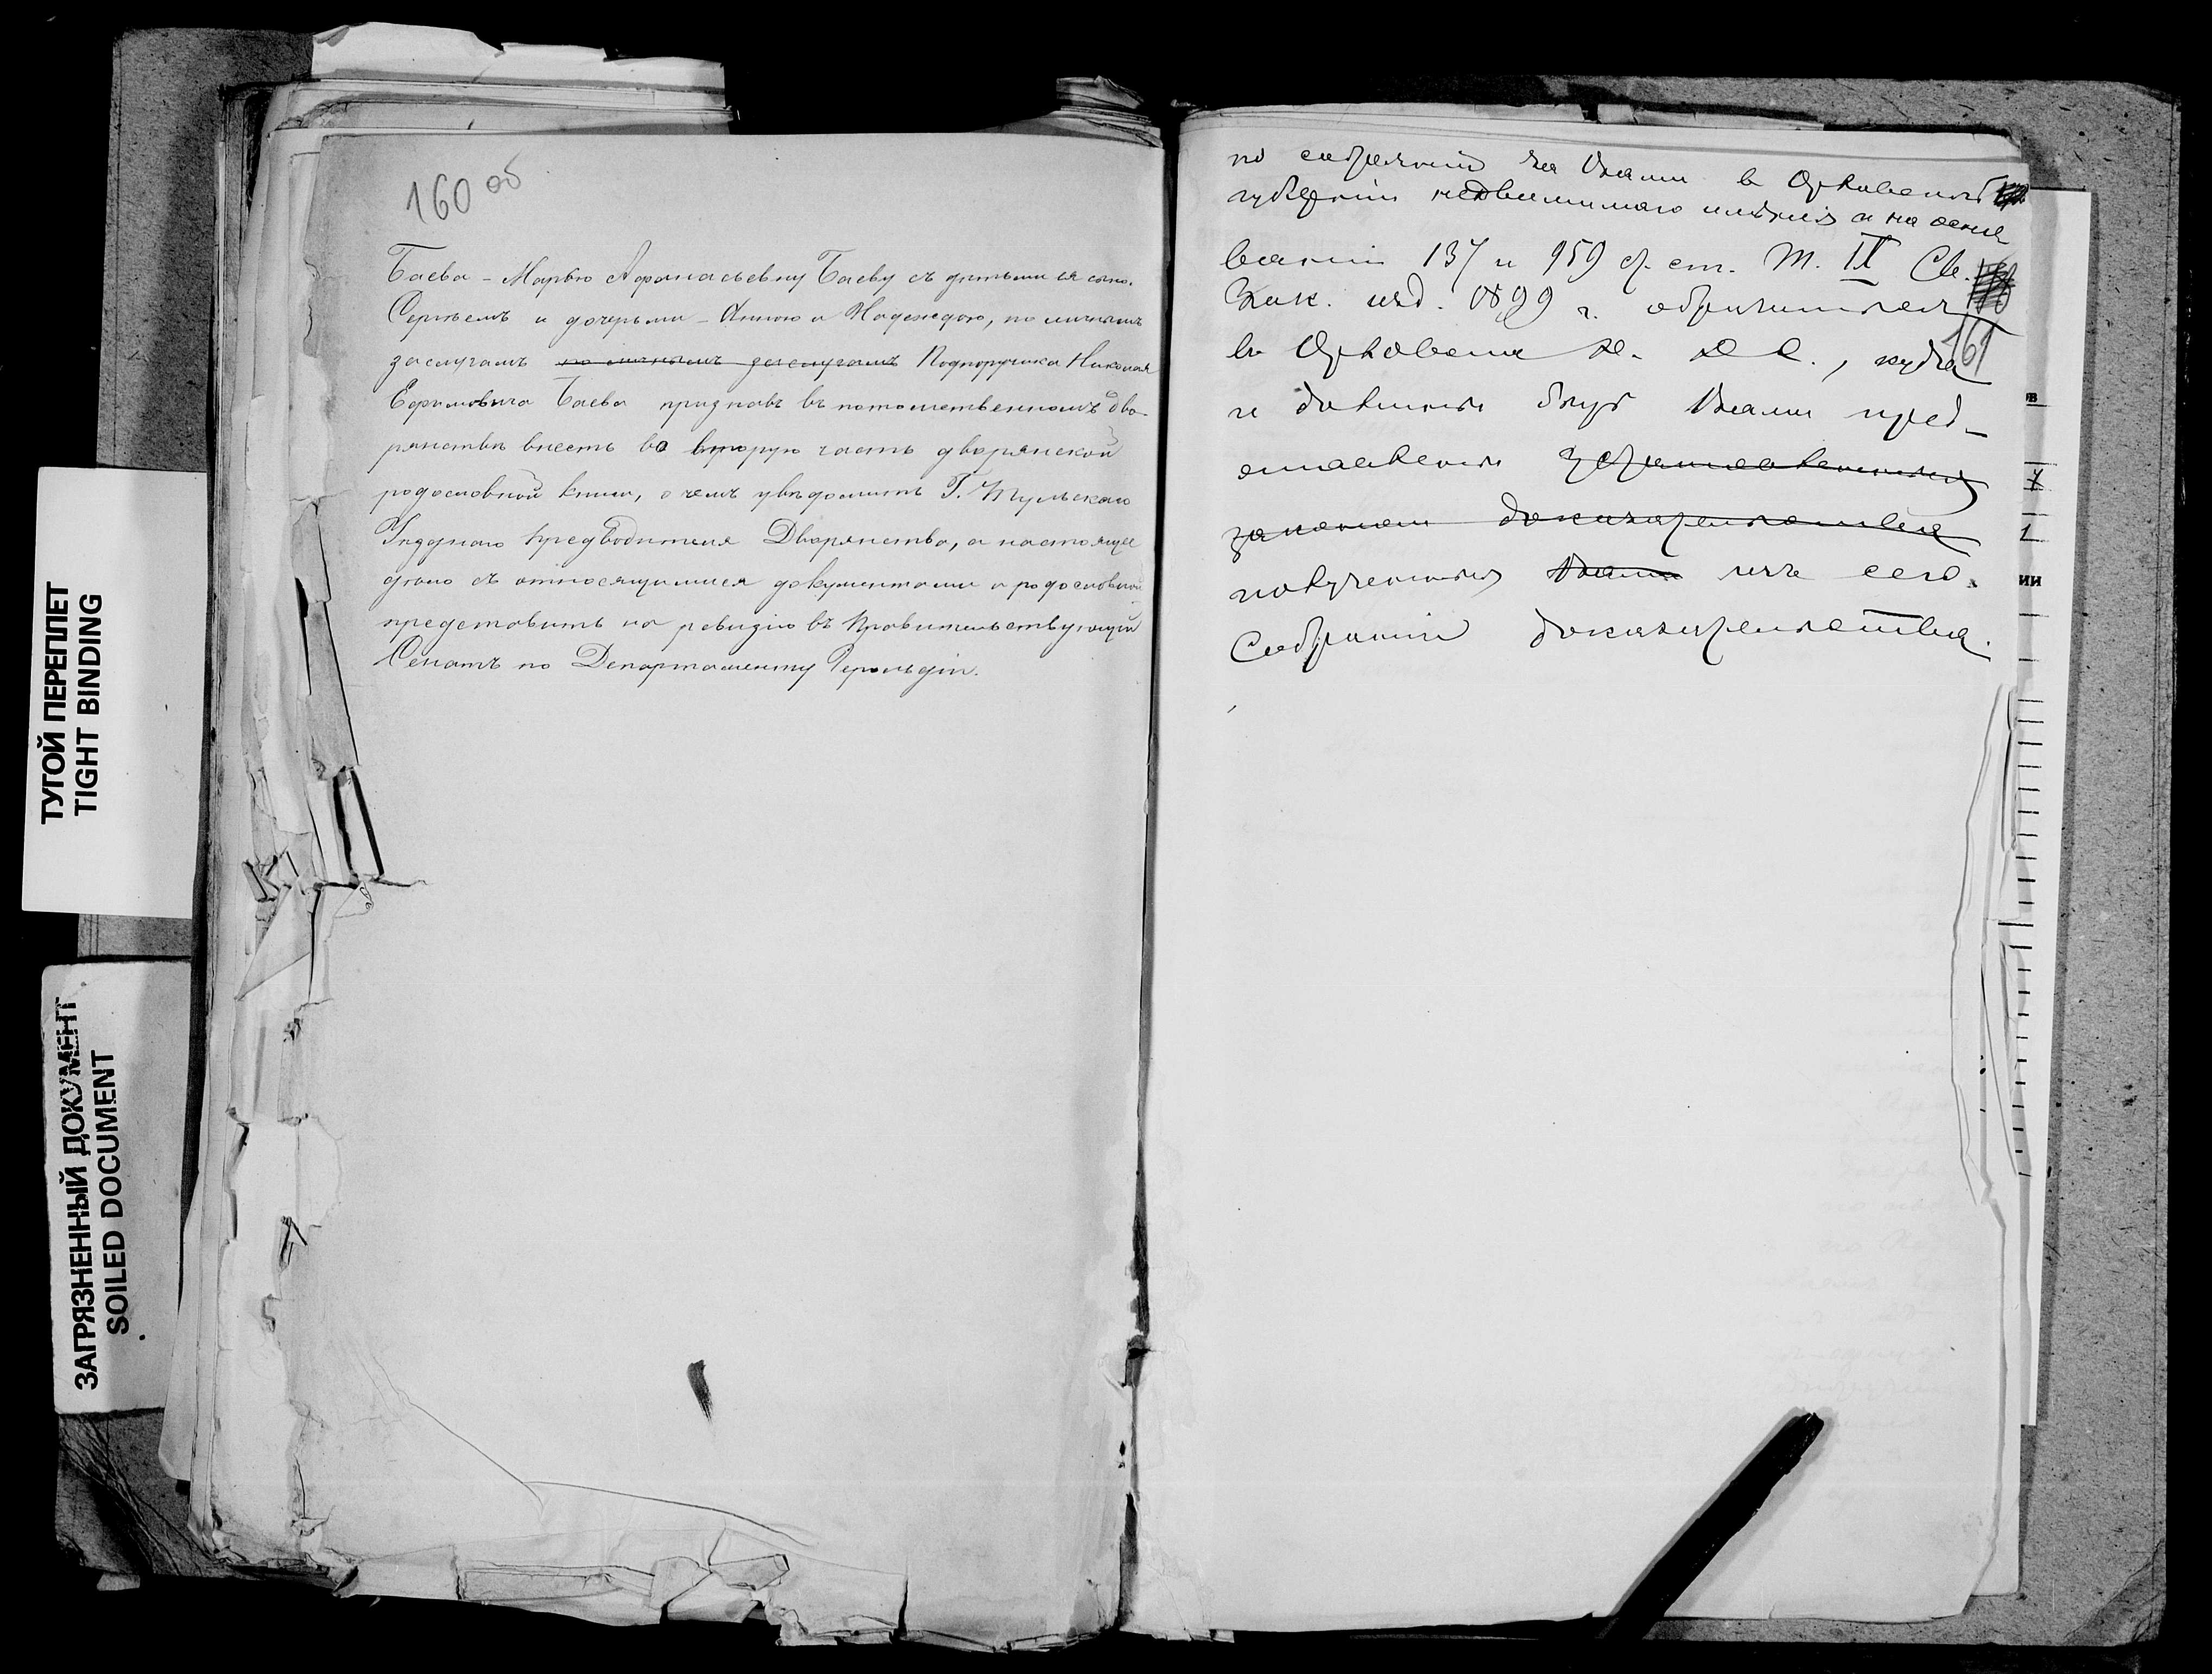 160 об
Баева - Марью Афанасьевну Баеву съ дѣтьми ея сыно.
Сергѣемъ и дочерьми - Анною и Надеждою, по личнымъ
заслугамъ по личнымъ заслугамъ Подпоручика Николая
Ефимовича Баева признавъ въ потомственномъ дво-
рянствѣ внесть во вторую часть дворянской
родословной книги, о чемъ увѣдомить Г. Тульскаго
Уѣзднаго Предводителя Дворянства, а настоящее
дѣло съ относящимися документами и родословной
представить на ревизію въ Правительствующій
Сенатъ по Департаменту Герольдіи.
по собраніи за Вами в Орловской
губерніи недвижимаго имѣнія и на осно
ваніи 137 и 959 ст. Т. IX Св.
Зак. изд. 1899 г. обратиться
161
в Орловское Д. Д. С., куда
и должны быть Вами пред-
ставлены установленныя
закономъ доказательства
полученныя Вами изъ сего
Собранія доказательства.
ТУГОЙ ПЕРЕПЛЕТ
TIGHT BINDING
ЗАГРЯЗНЕННЫЙ ДОКУМЕНТ
SOILED DOCUMENT